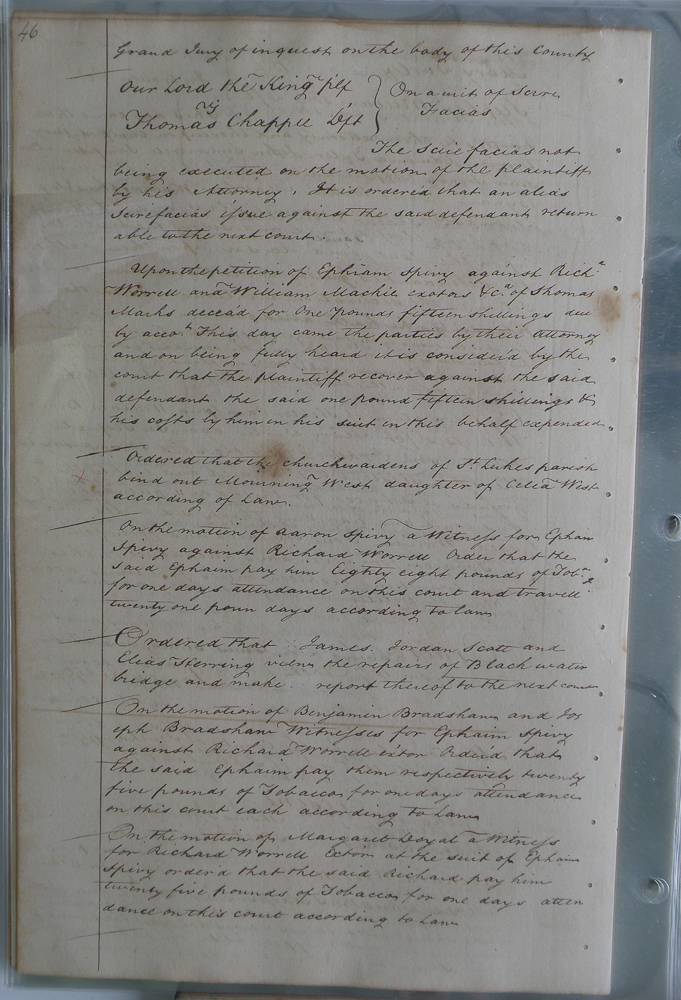 46
Grand Jury of inquest on the body of this County
Our Lord the King plf
vs
Thomas Chappel Deft
On a writ of Scire
Facias
The scire facias not
being executed on the motion of the plaintiff
by his Attorney, It is ordered that an alias
scirefacias issue against the said defendant return
able to the next court.
Upon the petition of Ephriam Spivy against Richd
Worrell and William Mackie exotors &ca of Thomas
Marks deceas'd for One pounds fifteen shillings due
by accot This day came the parties by their attorney
and on being fully heard it is consider'd by the
court that the plaintiff recover against the said
defendant the said one pound fifteen shillings &
his costs by him in his suit in this behalf expended
Ordered that the churchwardens of St. Lukes parish
bind out Mourning West daughter of Celia West
according of Law.
On the motion of Aaron Spivy a Witness for Epham
Spivy against Richard Worrell Order that the
said Ephaim pay him Eighty eight pounds of Tobo
for one days attendance on this court and travell
twenty one poun days according to law
Ordered that James Jordan Scott and
Elias Herring view the repairs of Black water
bridge and make report thereof to the next court
On the motion of Benjamin Bradshaw and Jos
eph Bradshaw Witnesses for Ephaim Spivy
against Richard Worrell extor Order'd that
the said Ephaim pay them respectively twenty
five pounds of Tobacco for one days attendance
on this court each according to Law
On the motion of Margaret Doyal a Witness
for Richard Worrell Extor at the suit of Ephaim
Spivy order'd that the said Richard pay him
twenty five pounds of Tobacco for one days atten
dance on this court according to Law